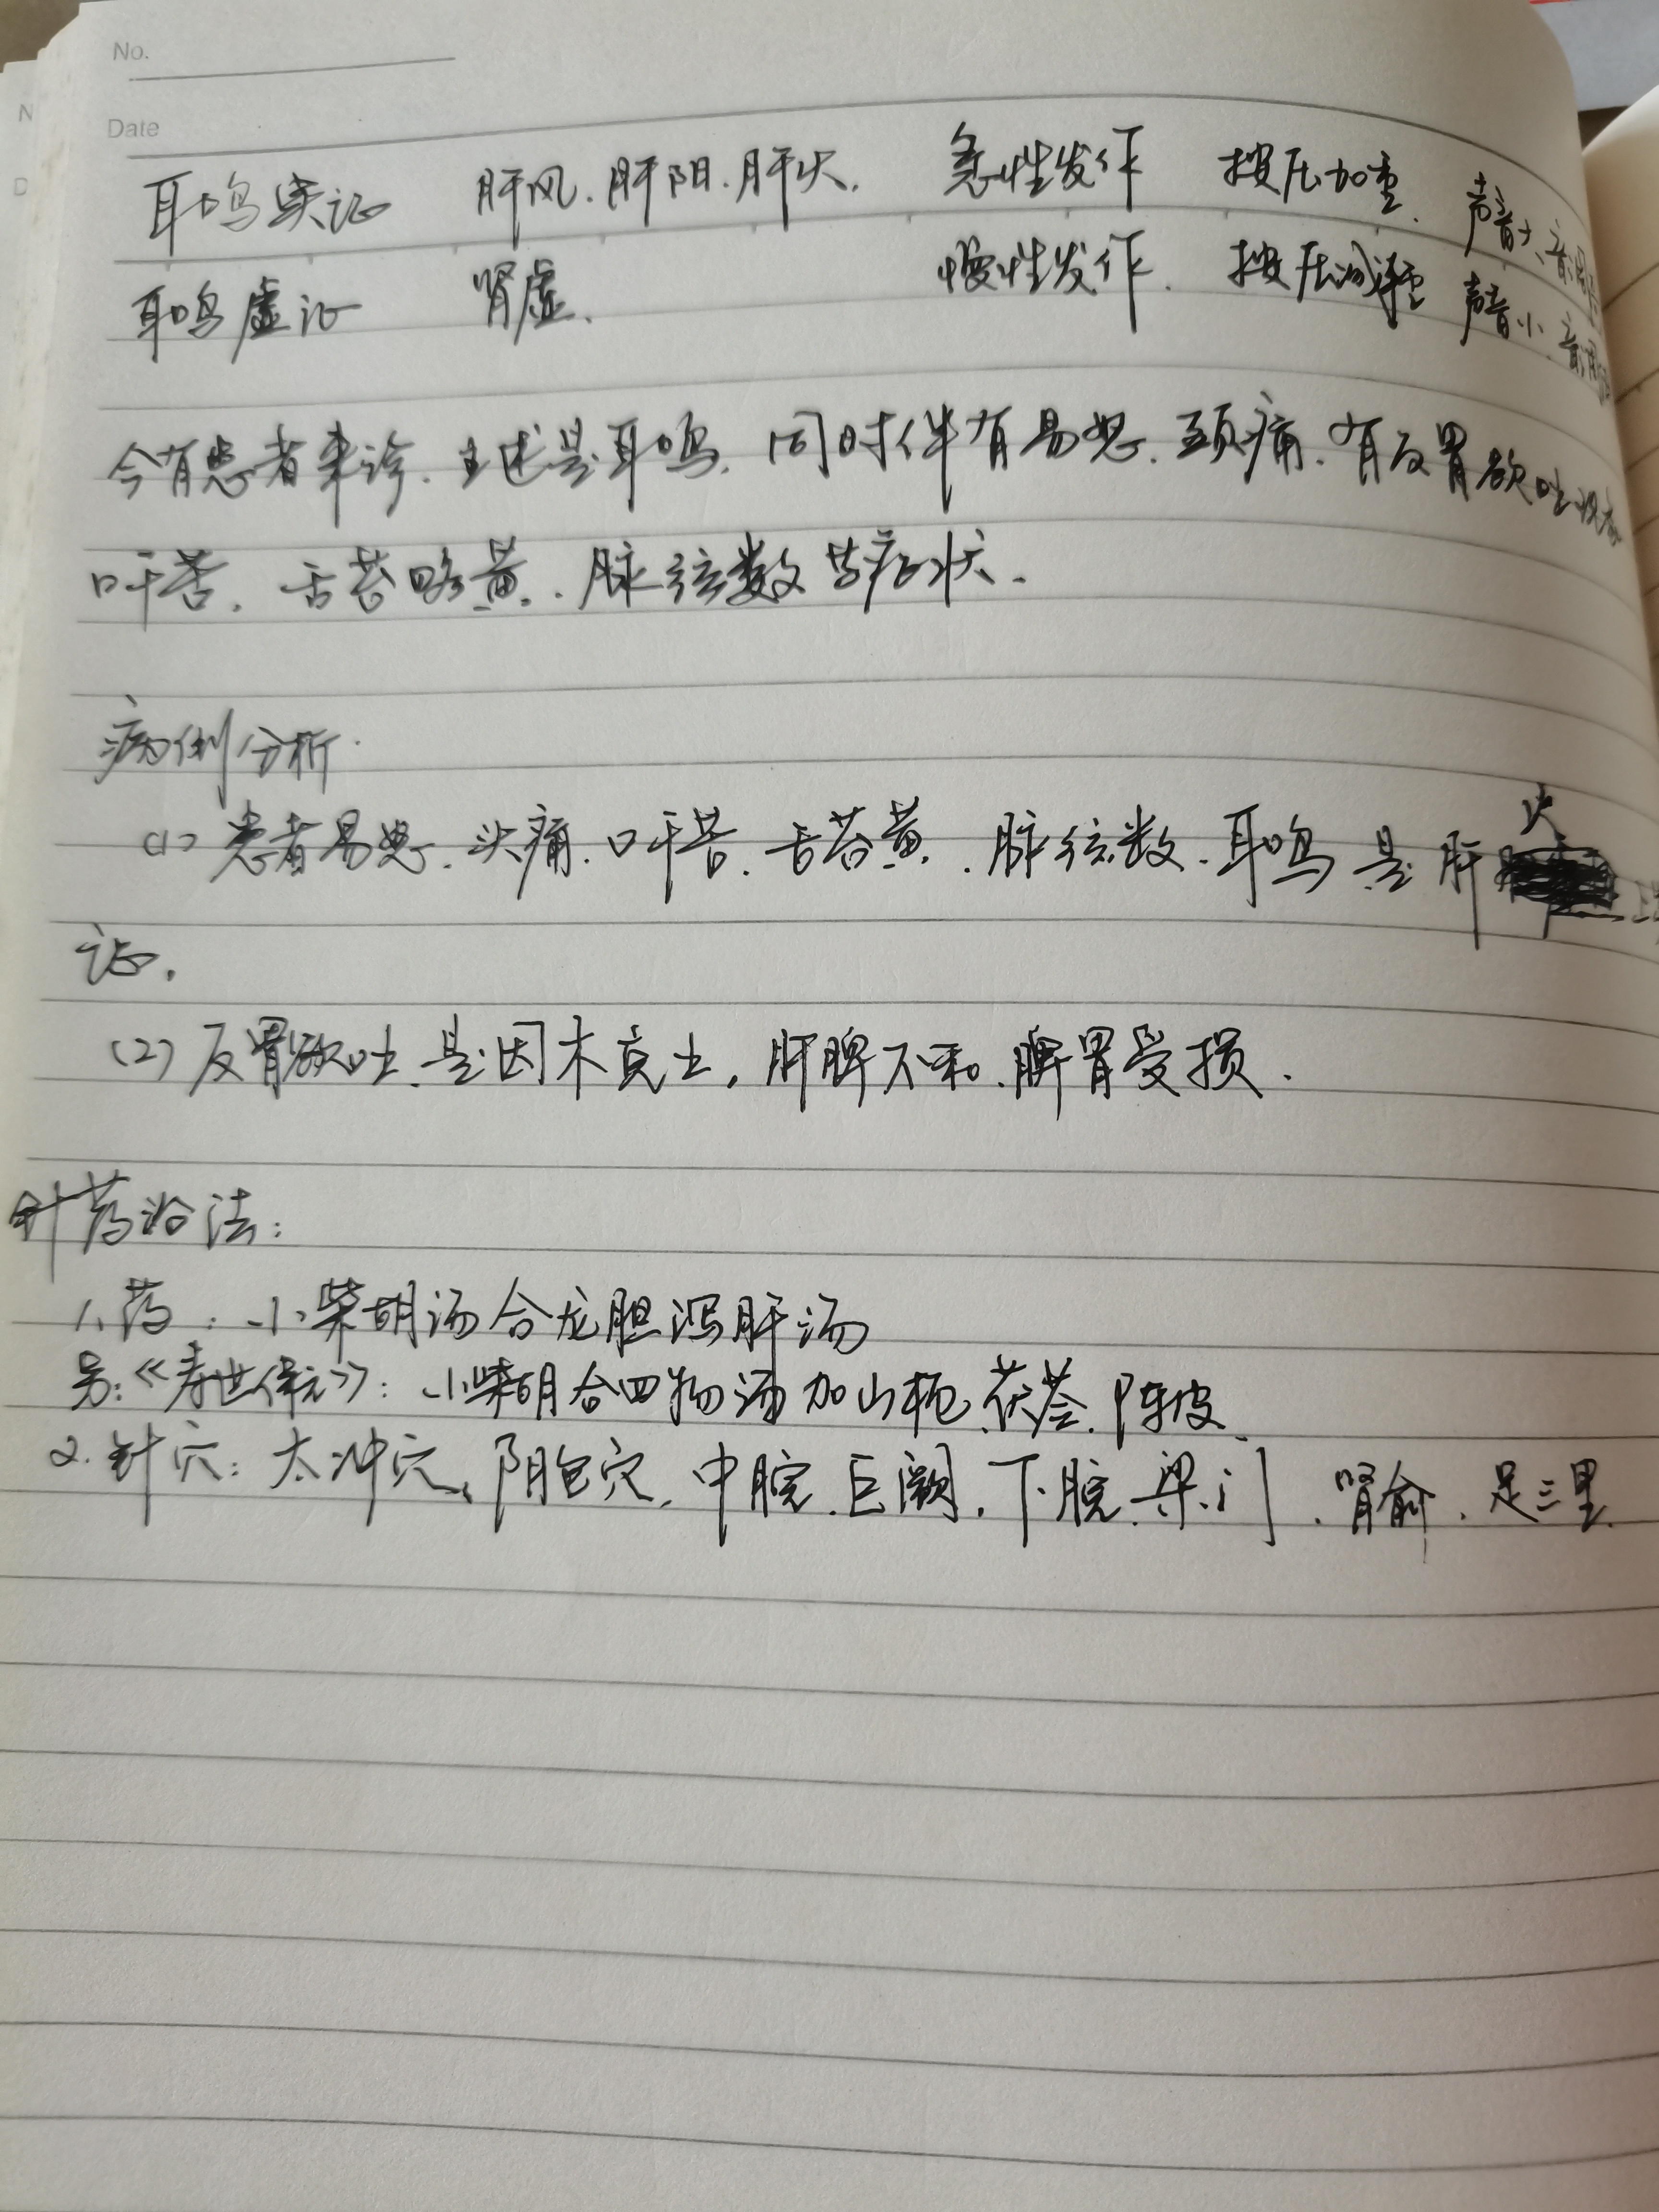 No.
Date
耳鸣实证 肝风.肝阳.肝火. 急性发作 按压加重. 声音大、音调
耳鸣虚证 肾虚. 慢性发作. 按压减轻 声音小.音调
今有患者来诊.主述是耳鸣.同时伴有易怒.头痛.有反胃欲吐状态
口干苦.舌苔略黄.脉弦数等症状.
病例分析.
(1)患者易怒.头痛.口干苦.舌苔黄.脉弦数.耳鸣是肝火
证.
(2)反胃欲吐.是因木克土,肝脾不和.脾胃受损.
针药治法:
1.药:小柴胡汤合龙胆泻肝汤
另:《寿世保元》:小柴胡合四物汤加山栀.茯苓.陈皮.
2.针穴:太冲穴、阴包穴,中脘.巨阙.下脘.梁门.肾俞.足三里.